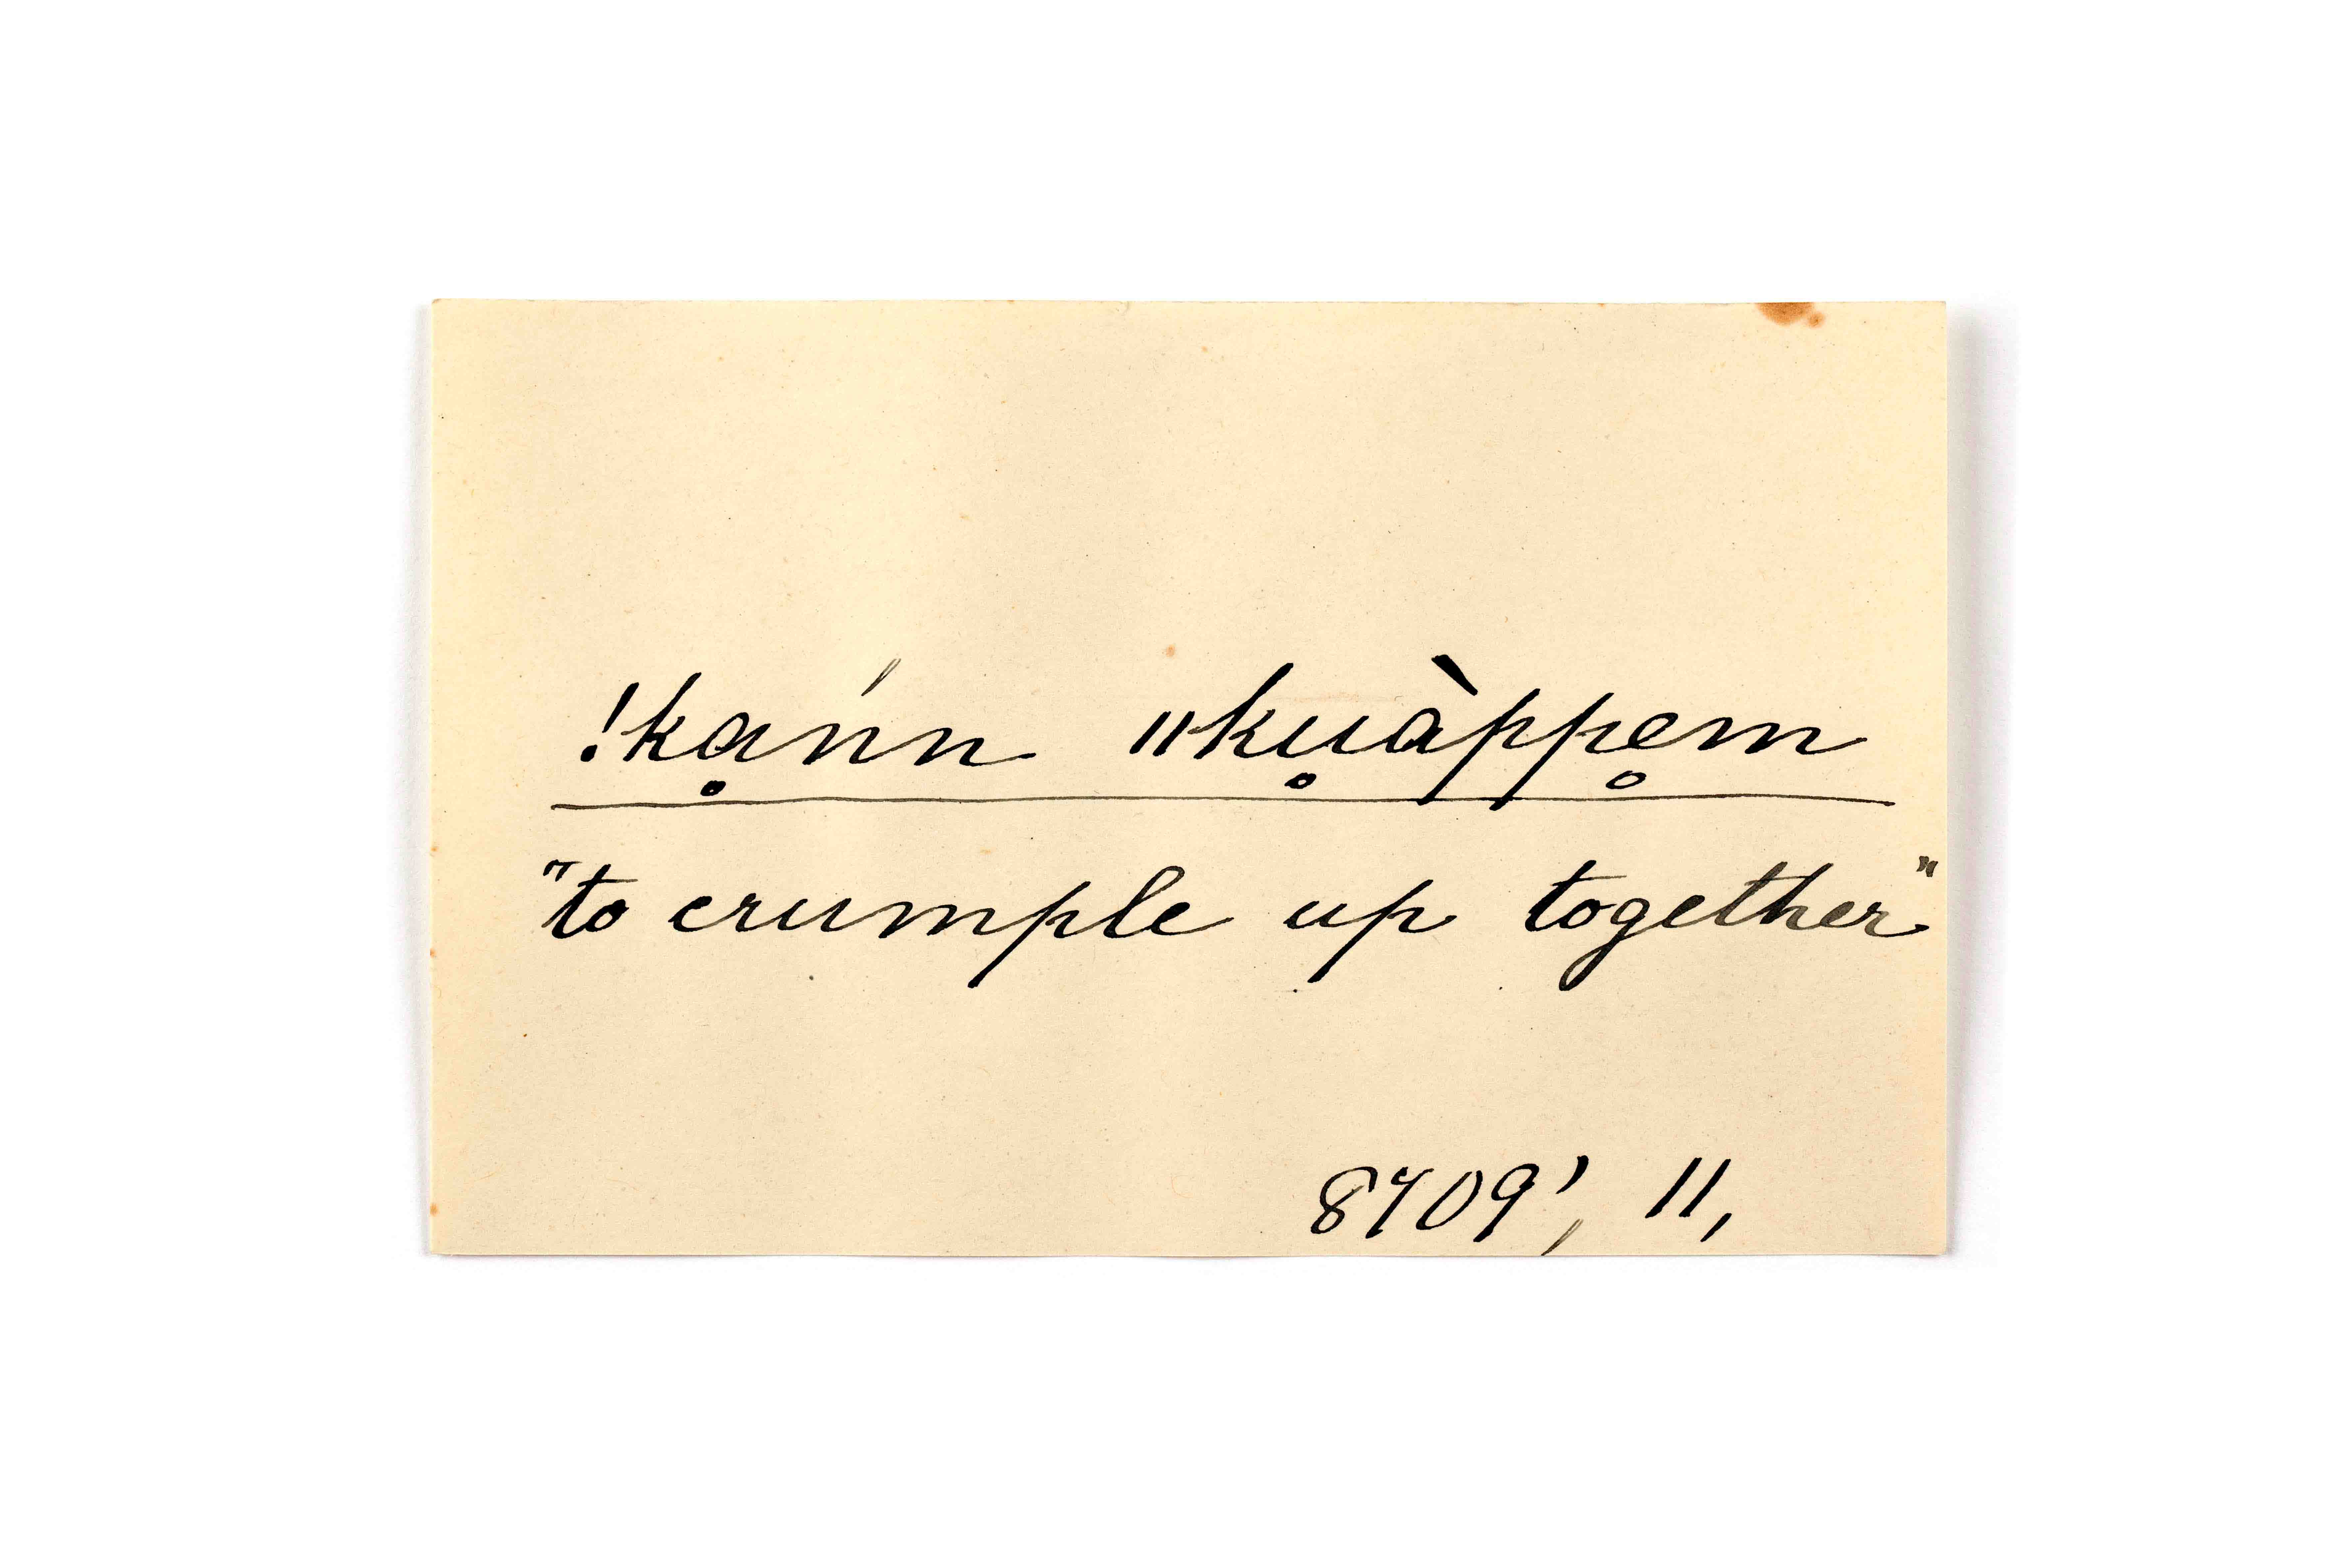 !kḁńn ǁku̥àppe̥m
"to crumple up together"
8709', 11,